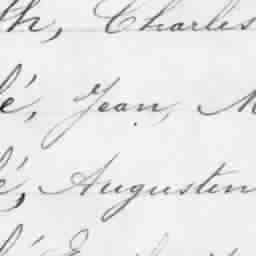 th, Charles
lé, Jean, M
é, Augustin